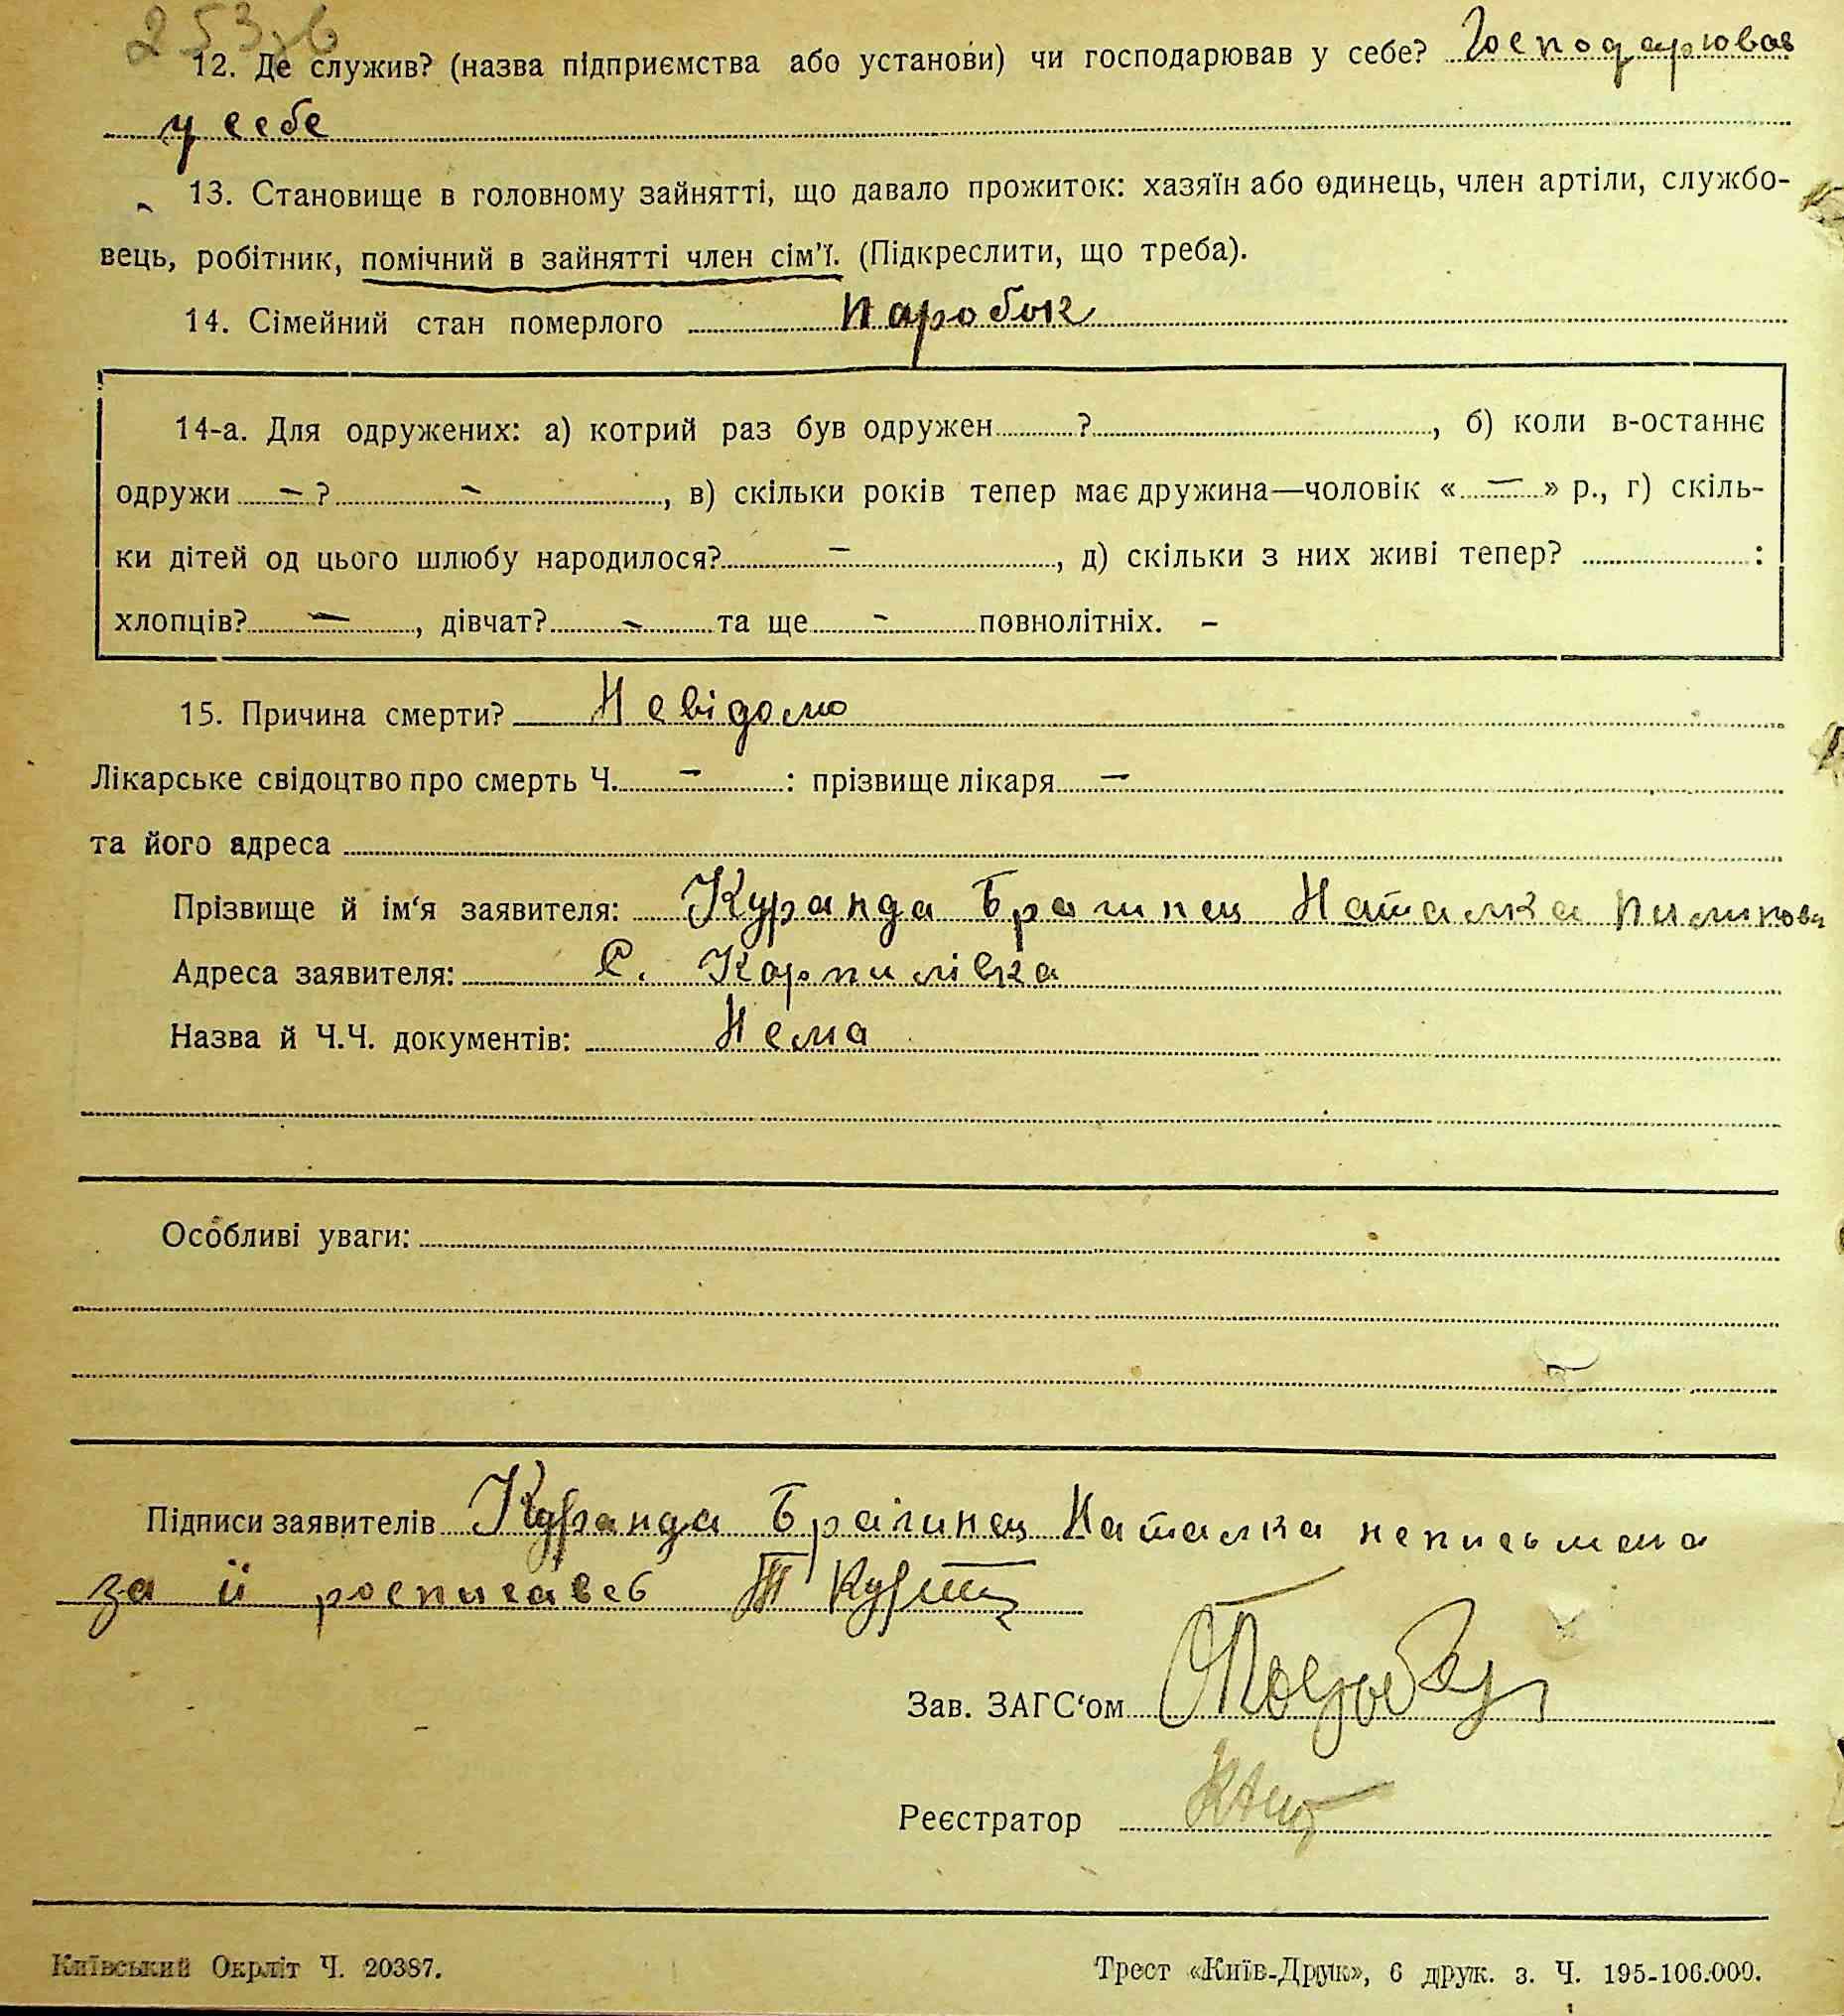 253зв
12. Де служив? (назва підприємства або установи) чи господарював у себе? Господарював
у себе
13. Становище в головному зайнятті, що давало прожиток: хазяїн або одинець, член артіли, службо-
вець, робітник, помічний в зайнятті член сім'ї. (Підкреслити, що треба).
14. Сімейний стан померлого паробок
14-а. Для одружених: а) котрий раз був одружен ? , б) коли в-останнє
одружи – ? – , в) скільки років тепер має дружина—чоловік « — » р., г) скіль-
ки дітей од цього шлюбу народилося? – , д) скільки з них живі тепер? :
хлопців? — , дівчат? – та ще – повнолітніх. –
15. Причина смерти? Невідомо
Лікарське свідоцтво про смерть Ч. – : прізвище лікаря –
та його адреса
Прізвище й ім'я заявителя: Куранда Брагинец Наталка
Адреса заявителя: С. Карпилівка
Назва й Ч.Ч. документів: Нема
Особливі уваги:
Підписи заявителів Куранда Брагинец Наталка неписьмена
за її росписавсь
Зав. ЗАГС'ом
Реєстратор
Київський Окрліт Ч. 20387.
Трест «Київ-Друк», 6 друк. з. Ч. 195-106.000.